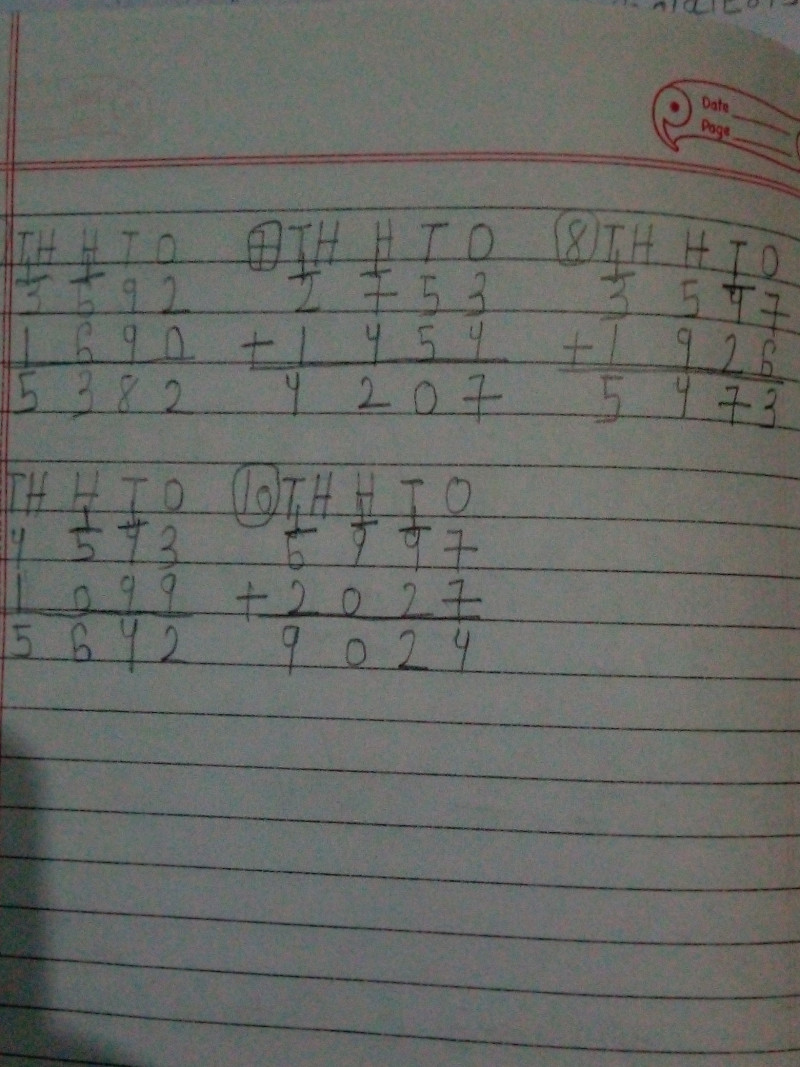 Date
Page
TH H T O ⑦ TH H T O ⑧ TH H T O
1 1 1 1 1 1
3 6 9 2 2 7 5 3 3 5 4 7
1 6 9 0 + 1 4 5 4 + 1 9 2 6
5 3 8 2 4 2 0 7 5 4 7 3
TH H T O ⑩ TH H T O
1 1 1 1 1
4 5 4 3 6 9 9 7
1 0 9 9 + 2 0 2 7
5 6 4 2 9 0 2 4